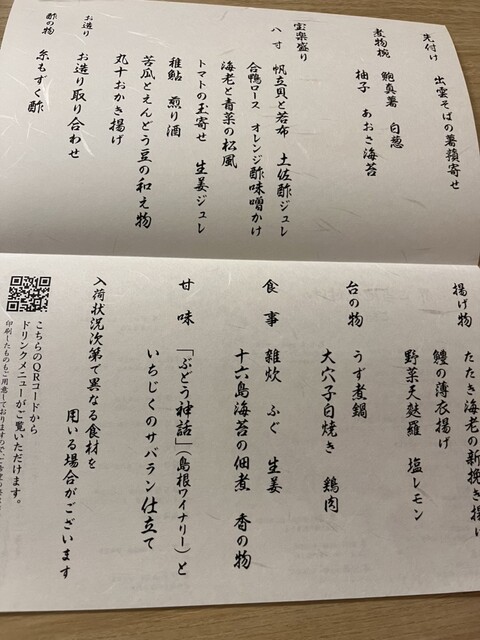 先付け　出雲そばの薯蕷寄せ
煮物椀　鮑真薯　白葱
柚子　あおさ海苔
宝楽盛り
八寸　帆立貝と若布　土佐酢ジュレ
合鴨ロース　オレンジ酢味噌かけ
海老と青菜の松風
トマトの玉寄せ　生姜ジュレ
稚鮎　煎り酒
苦瓜とえんどう豆の和え物
丸十おかき揚げ
お造り　お造り取り合わせ
酢の物　糸もずく酢
揚げ物　たたき海老の新挽き揚げ
鰻の薄衣揚げ
野菜天麩羅　塩レモン
台の物　うず煮鍋
大穴子白焼き　鶏肉
食事　雑炊　ふぐ　生姜
十六島海苔の佃煮　香の物
甘味　「ぶどう神話」（島根ワイナリー）と
いちじくのサバラン仕立て
入荷状況次第で異なる食材を
用いる場合がございます
こちらのQRコードから
ドリンクメニューがご覧いただけます。
印刷したものもご用意しておりますので、